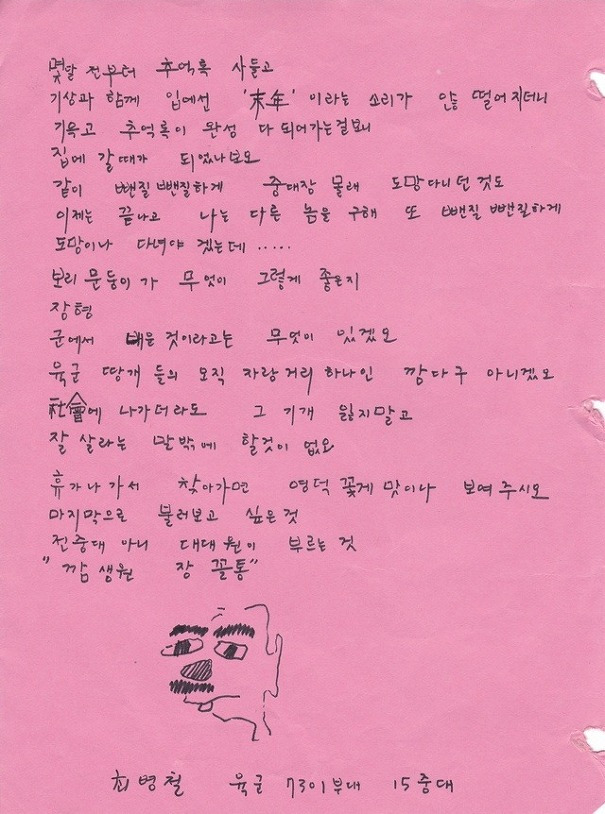 몇달 전부터 추억록 사들고
기상과 함께 입에선 '末年' 이라는 소리가 안 떨어지더니
기윽고 추억록이 완성 다 되어가는걸보니
집에 갈때가 되었나보오
같이 뺀질뺀질하게 중대장 몰래 도망다니던 것도
이제는 끝나고 나는 다른 놈을 구해 또 뺀질 뺀질하게
도망이나 다녀야 겠는데 .....
보리 문둥이 가 무엇이 그렇게 좋은지
장형
군에서 배운 것이라고는 무엇이 있겠오
육군 땅개 들의 오직 자랑거리 하나인 깜다구 아니겠오
社會에 나가더라도 그 기개 잃지말고
잘 살라는 말밖에 할것이 없오
휴가나가서 찾아가면 영덕 꽃게 맛이나 보여 주시오
마지막으로 불러보고 싶은것
전중대 아니 대대원이 부르는 것
"깜생원 장 꼴통"
최병철 육군 7301부대 15중대